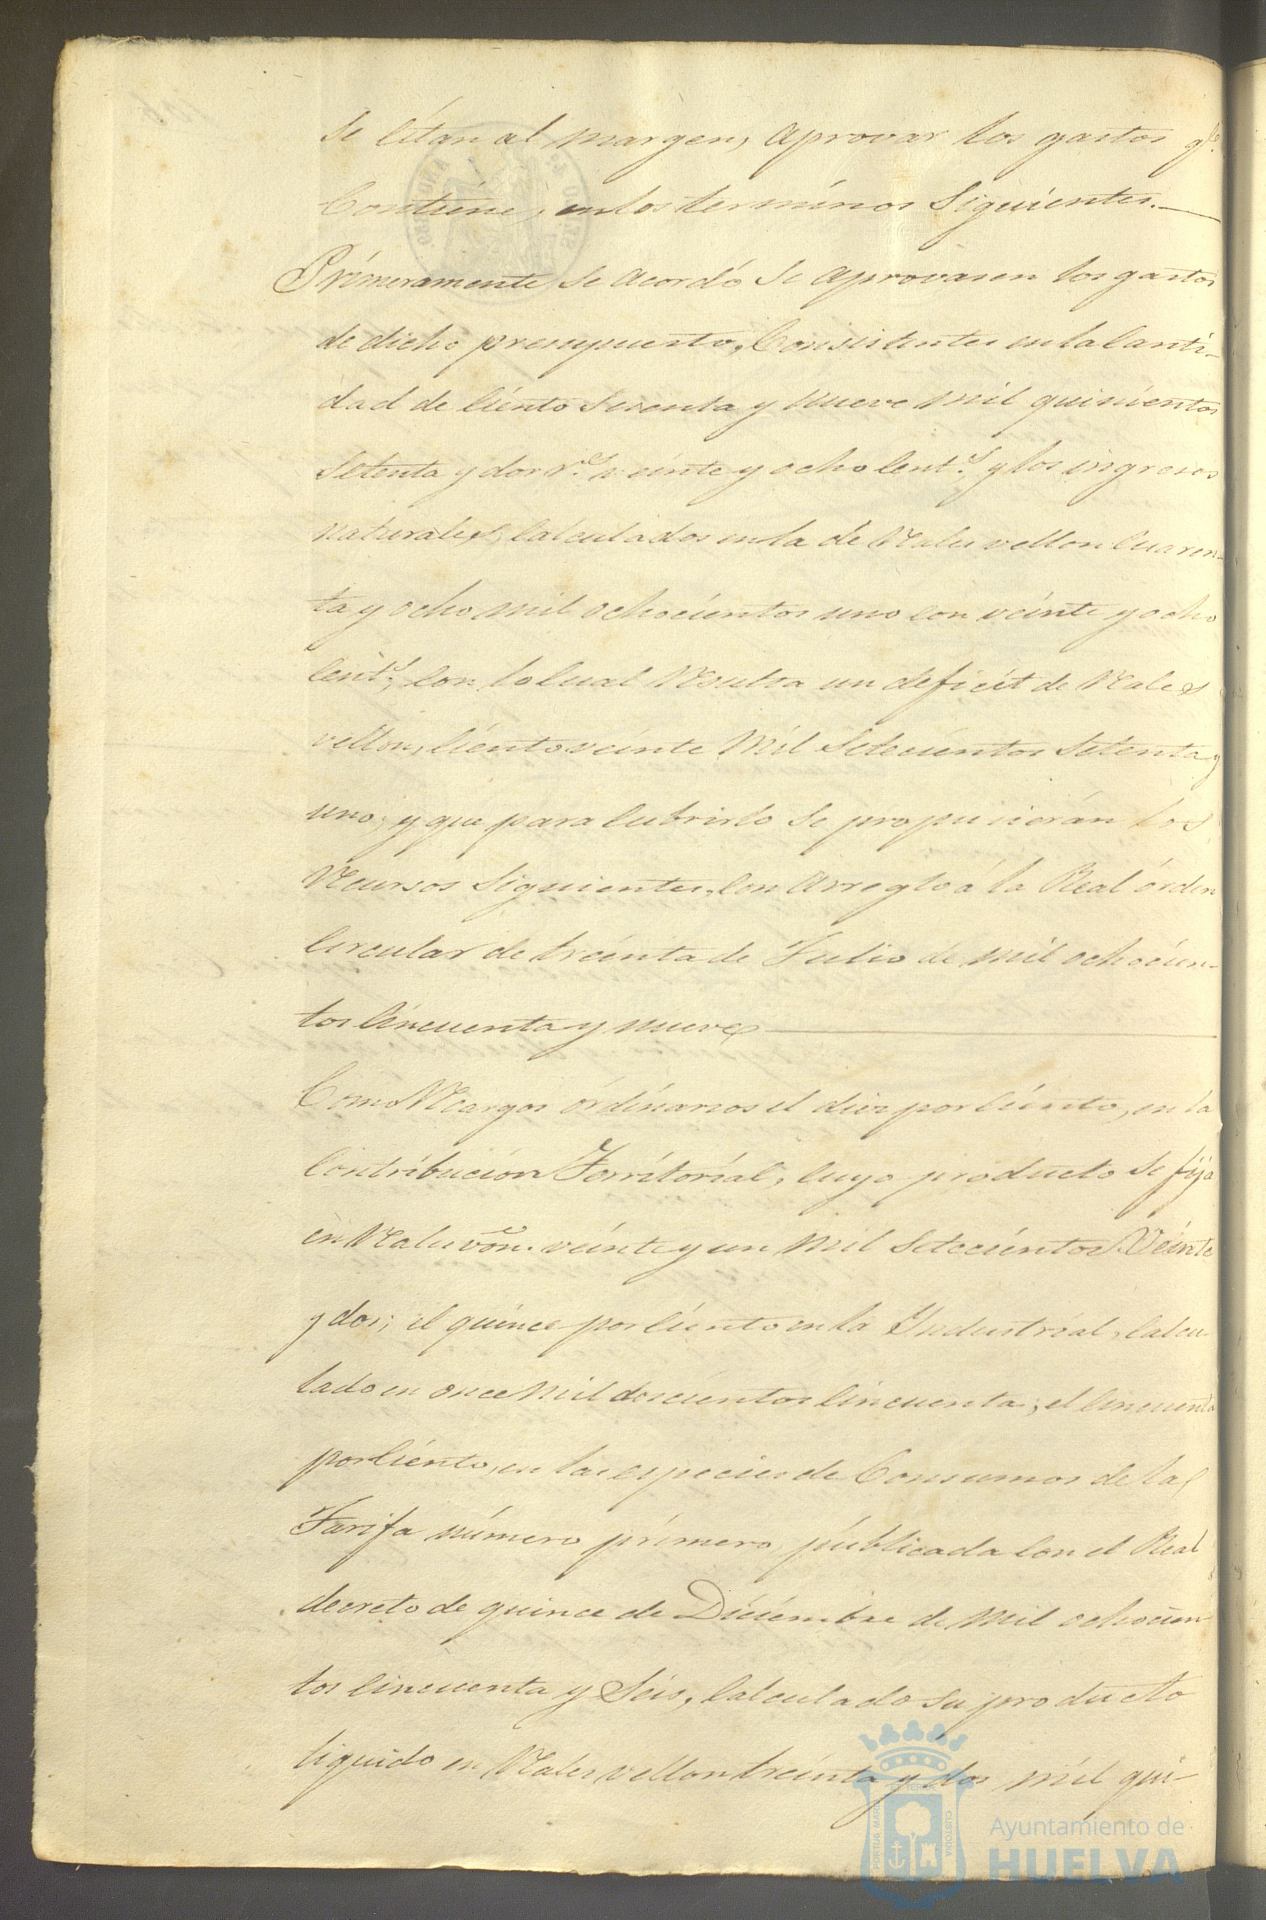 Se citan al margen, aprovar los gastos q.e
Contiene, en los terminos Siguientes.—
Primeramente se acordó se aprovasen los gastos
de dicho presupuesto, Consistentes en la Canti-
dad de Ciento Sesenta y nueve mil quinientos
Setenta y dos r.s veinte y ocho Cent.s y los ingresos
naturales, Calculados en la de Reales vellon Cuaren-
ta y ocho mil ochocientos uno con veinte y ocho
Cent.s, Con lo Cual Resulta un deficit de Reales
vellon, Ciento veinte Mil Setecientos Setenta y
uno; y que para Cubrirlo se propusierán los
Recursos Siguientes, Con arreglo á la Real órden
Circular de treinta de Julio de mil ochocien-
tos Cincuenta y nueve —
Como Recargos órdinarios el diez por Ciento, en la
Contribucion Territorial, Cuyo producto se fija
en Reales von. veinte y un Mil Setecientos Veinte
y dos; el quince por Ciento en la Industrial, Calcu-
lado en once Mil doscientos Cincuenta; el Cincuenta
por Ciento, en las especies de Consumos de la
Tarifa número primero, publicada Con el Real
decreto de quince de Diciembre de Mil ochocien-
tos Cincuenta y Seis, Calculado su producto
liquido en Reales vellon treinta y dos mil qui-
Ayuntamiento de
HUELVA